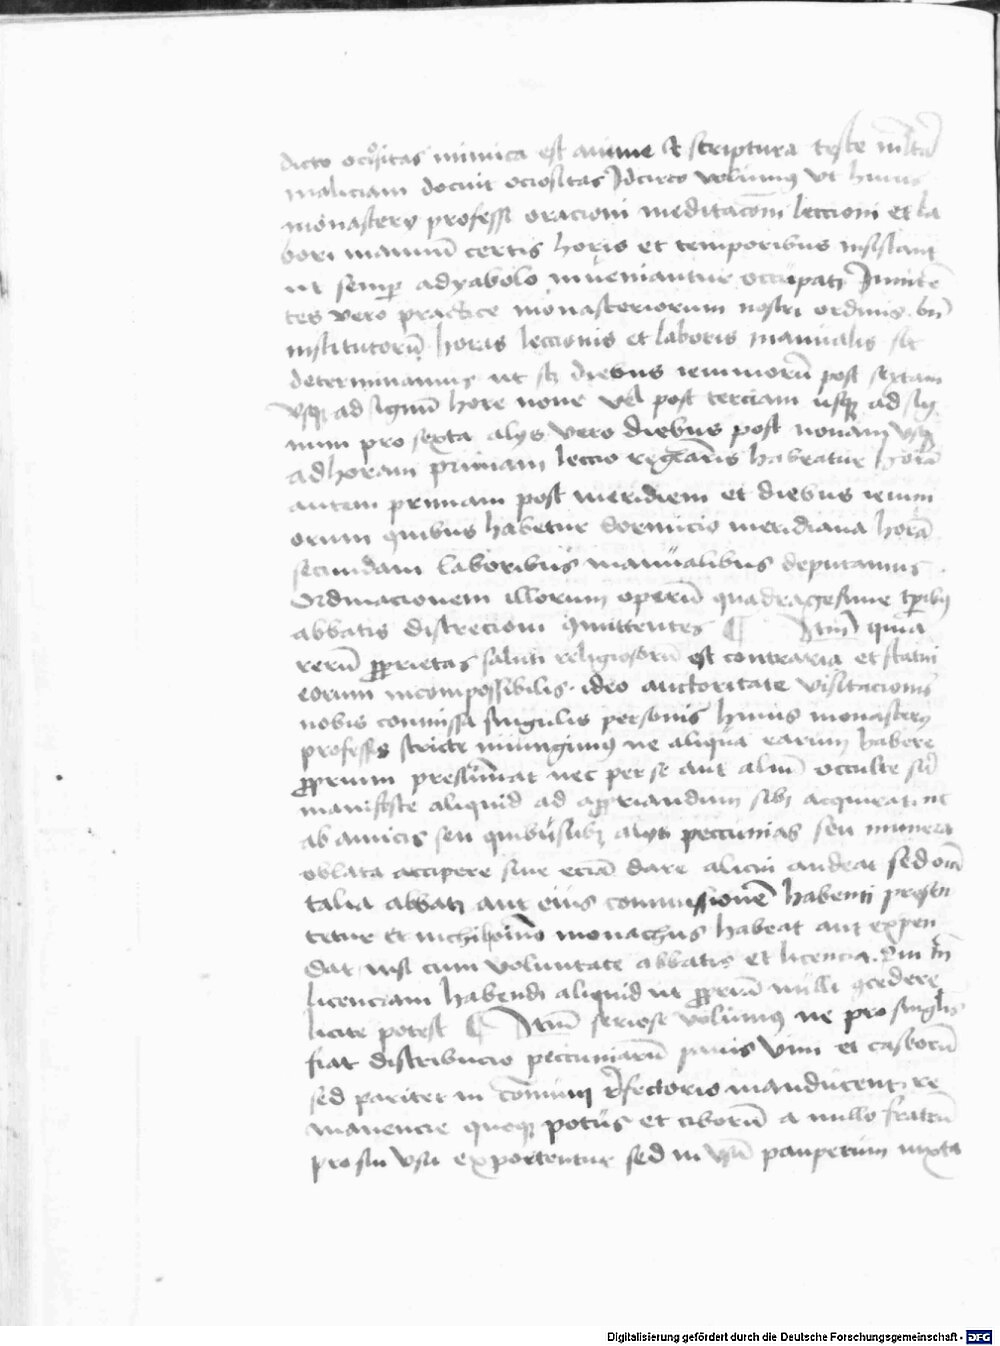 dicto ociositas inimica est anime Et scriptura teste multā
maliciam docuit ociositas Idcirco volumus vt huius
monastery professi oracioni meditacōni leccioni et la
bori manuū certis horis et temporibus insistant
ut semp adyabolo inveniantur occupati Inniten
tes vero practice monasteriorum nostri ordinis bn̄
institutorū horas leccionis et laboris manualis sic
determinamus ut sꝫ diebus ieiuniorū post sextam
vsqꝫ ad signū hore none vel post terciam usqꝫ ad sig
num pro sexta alys vero diebus post nonam vsqꝫ
ad horam primam leccio regularis habeatur horā
autem primam post meridiem et diebus ieiuni
orum quibus habetur dormicio meridiana horā
secundam laboribus manualibus deputamus
Ordinacionem illorum operū quadragesime tp̄ibꝫ
abbatis discrecioni ꝯmittentes ¶ Itm̄ quia
rerū ꝓprietas saluti religiosorū est contraria et statui
eorum incompossibilis · ideo auctoritate visitacionis
nobis commissa singulis personis huius monasterij
professis stricte iniungimꝰ ne aliqua earum habere
ꝓprium presumat nec per se aut aliū occulte siu̇
manifeste aliquid ad apꝓpriandum sibi acquirat · nec
ab amicis seu quibuslibꝫ alys peccunias seu munera
oblata accipere siue eciā dare alicui audeat sed om̄
talia abbati aut eius commissionē habenti presen
tetur Et nichil om̄no monachus habeat aut expen
dat nisi cum voluntate abbatis et licencia · Qui tn̄
licenciam habendi aliquid ut ꝓpriū nulli ꝯcedere
licite potest ¶ Itm̄ seriose volumꝰ ne pro singlis
fiat distribucio peccuniarū panis vini et caseorū
sed pariter in cōmuni refectorio manducent · re
manencie quoqꝫ potus et ciborū a nullo fratrū
pro sui vsu exportentur sed in vsū pauperum iuxta
Digitalisierung gefördert durch die Deutsche Forschungsgemeinschaft - DFG